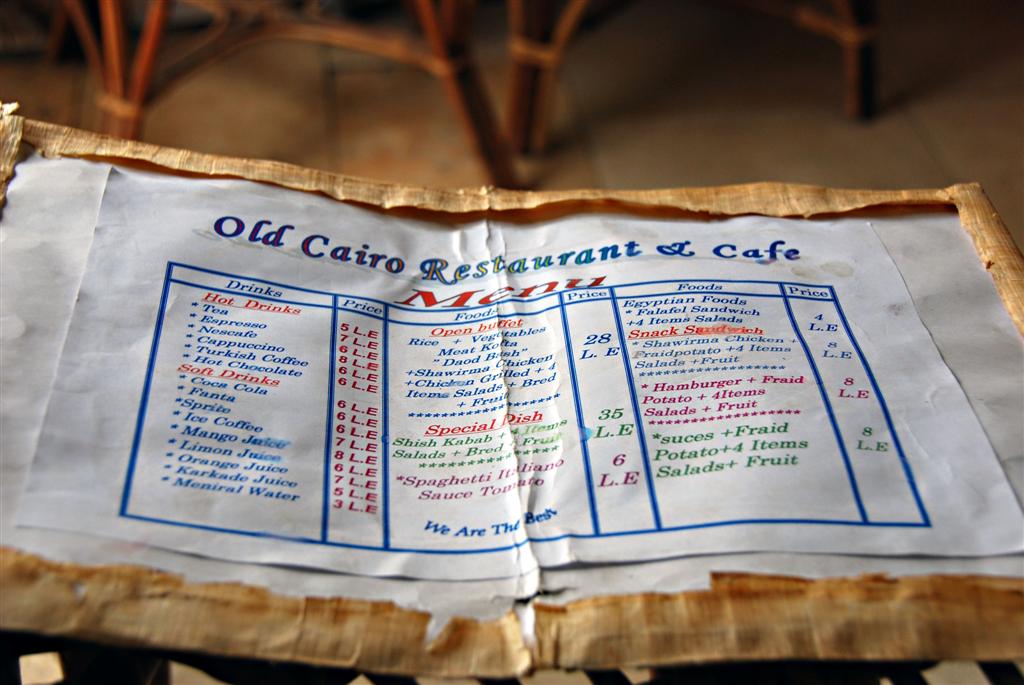 Old Cairo Restaurant & Cafe
Menu
Drinks
Price
Hot Drinks
* Tea
* Espresso
* Nescafe
* Cappuccino
* Turkish Coffee
* Hot Chocolate
Soft Drinks
* Coca Cola
* Fanta
*Sprite
* Ice Coffee
* Mango Juice
* Limon Juice
* Orange Juice
* Karkade Juice
* Meniral Water
5 L.E
7 L.E
6 L.E
8 L.E
6 L.E
6 L.E
6 L.E
6 L.E
6 L.E
7 L.E
8 L.E
6 L.E
7 L.E
5 L.E
3 L.E
Foods
Price
Open buffet
Rice + Vegetables
Meat Kofta
"Daud Bash"
+Shawirma Chicken
+Chicken Grilled + 4
Items Salads + Bred
+ Fruit
********************
28
L. E
Special Dish
Shish Kabab + 4 Items
Salads + Bred + Fruit
********************
35
L.E
*Spaghetti Italiano
Sauce Tomato
6
L.E
We Are The Best
Foods
Price
Egyptian Foods
* Falafel Sandwich
+4 Items Salads
4
L.E
Snack Sandwich
* Shawirma Chicken +
Fraidpotato +4 Items
Salads +Fruit
********************
8
L.E
* Hamburger + Fraid
Potato + 4Items
Salads + Fruit
********************
8
L.E
*suces +Fraid
Potato+4 Items
Salads+ Fruit
8
L.E